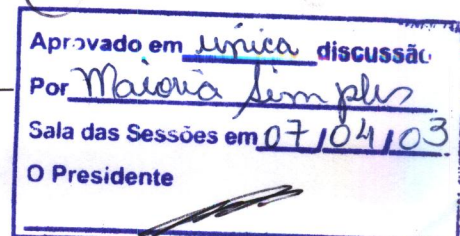 Aprovado em única discussão
Por Maioria Simples
Sala das Sessões em 07/04/03
O Presidente